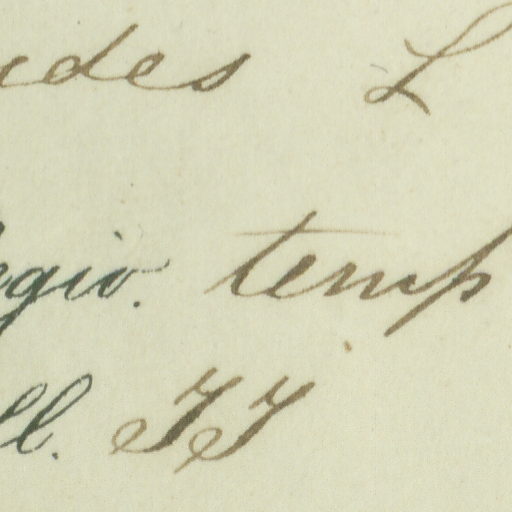 udes L
egio. temp
ll. TT